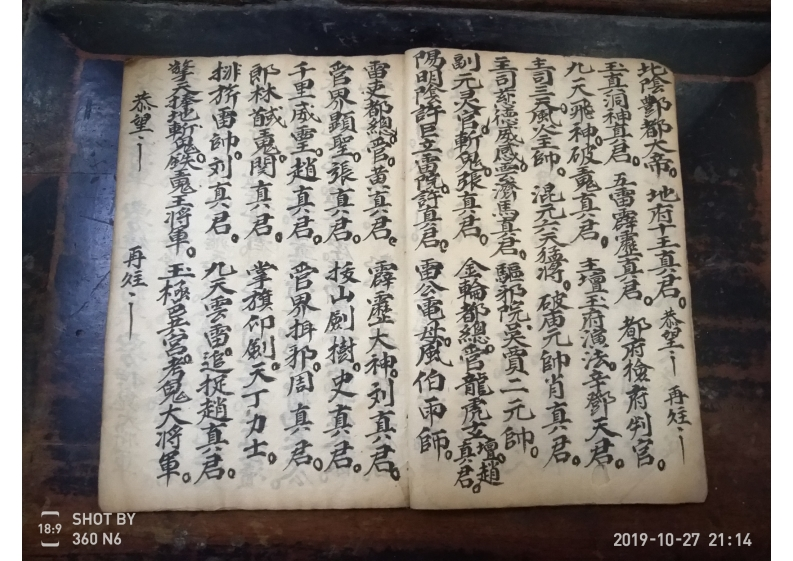 北陰酆都大帝。地府十王真君。恭望 再炷
玉真洞神真君。五雷霹靂真君。都府檢府判官。
九天飛神破鬼真君。主壇玉府演法辛鄧天君。
主司三天風火全帥。混元六天猛將。破庙元帥肖真君。
主司慈德威感雲濟馬真君。驅邪院吳賈二元帥。
副元天官斬鬼張真君。金輪都總管龍虎玄壇趙真君。
陽明陰許巨立雷院許真君。雷公電母風伯雨師。
雷吏都總管黃真君。霹靂大神刘真君。
管界顯聖張真君。拔山劍樹史真君。
千里威靈趙真君。管界捐邪周真君。
郎林馘鬼関真君。掌旗仰劍天丁力士。
排㫊雷帥刘真君。九天雲雷追捉趙真君。
擎天捧地斬鬼馘鬼王將軍。玉極巽宮考鬼大將軍。
恭望 再炷
SHOT BY
360 N6
18:9
2019-10-27 21:14